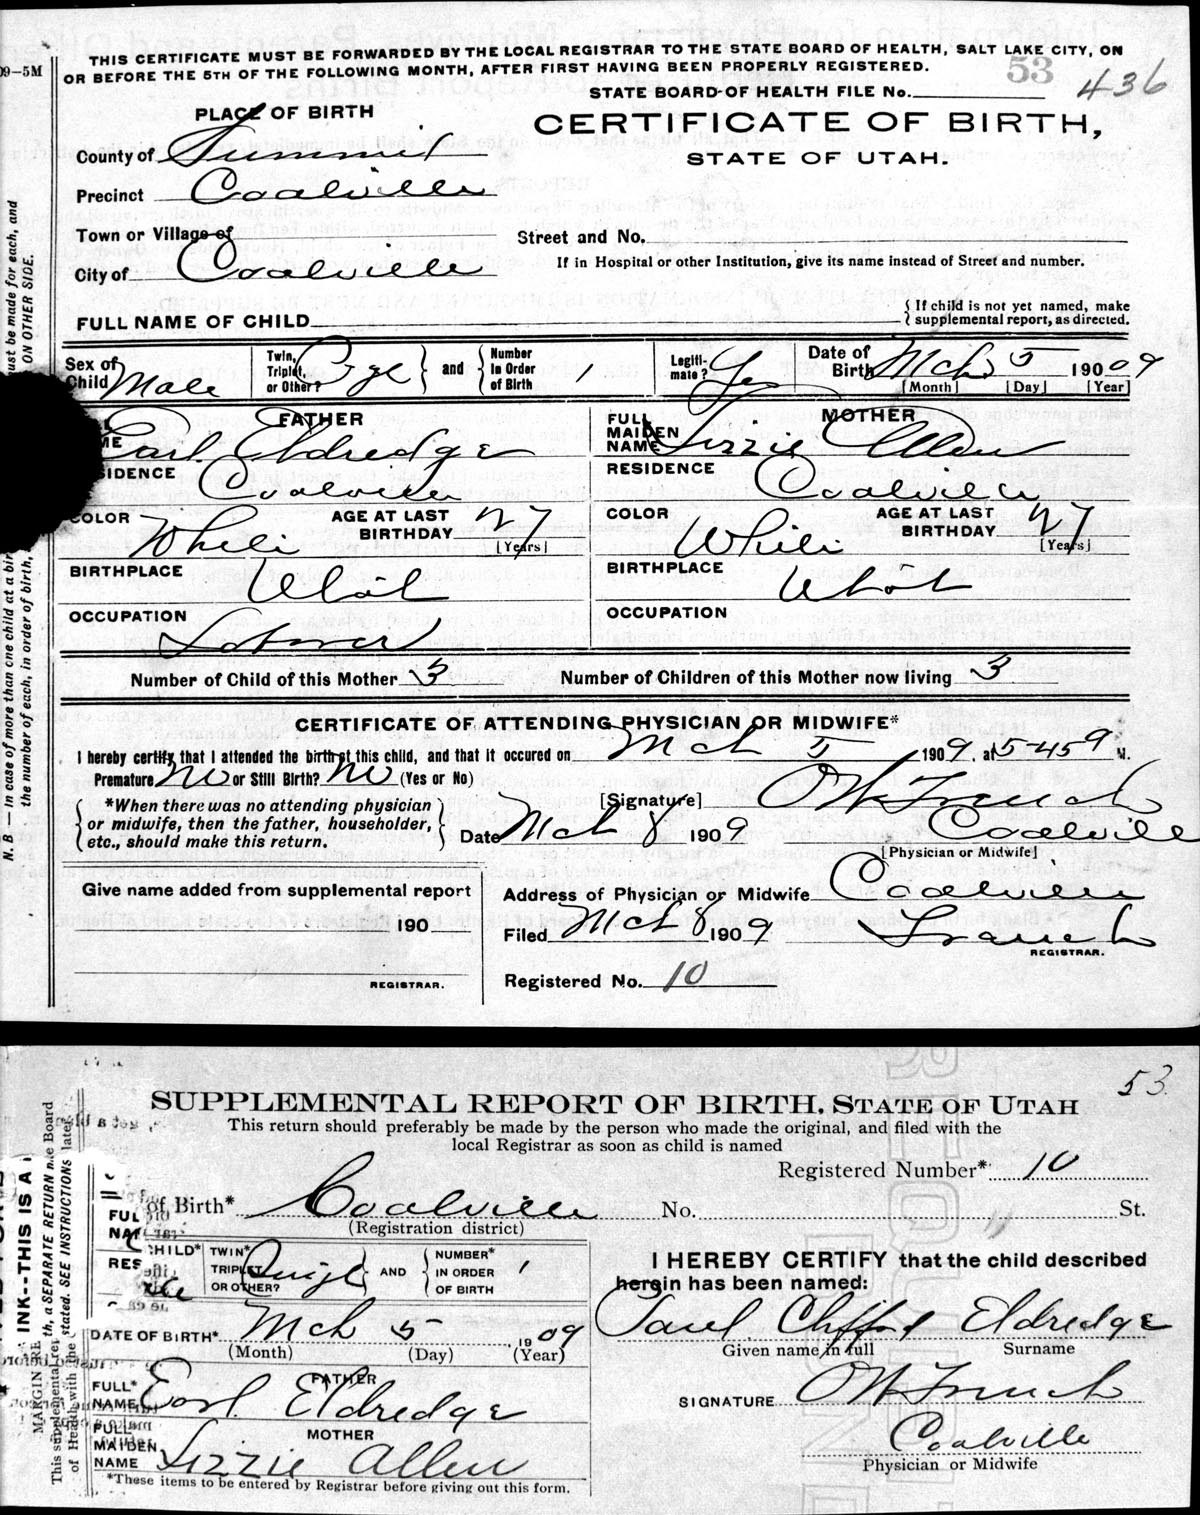 THIS CERTIFICATE MUST BE FORWARDED BY THE LOCAL REGISTRAR TO THE STATE BOARD OF HEALTH, SALT LAKE CITY, ON
09-5M
OR BEFORE THE 5TH OF THE FOLLOWING MONTH, AFTER FIRST HAVING BEEN PROPERLY REGISTERED.
53
STATE BOARD OF HEALTH FILE No. 436
PLACE OF BIRTH
CERTIFICATE OF BIRTH,
STATE OF UTAH.
County of Summit
Precinct Coalville
Town or Village of
Street and No.
City of Coalville
If in Hospital or other Institution, give its name instead of Street and number.
FULL NAME OF CHILD
{ If child is not yet named, make supplemental report, as directed.
Sex of Child Male
Twin, Triplet, or Other?
and
Number In Order of Birth 1
Legiti-mate? Yes
Date of Birth Mch 5 1909
[Month] [Day] [Year]
FATHER
Earl Eldredge
RESIDENCE Coalville
COLOR White
AGE AT LAST BIRTHDAY 27 [Years]
BIRTHPLACE Utah
OCCUPATION Laborer
MOTHER
FULL MAIDEN NAME Lizzie Allen
RESIDENCE Coalville
COLOR White
AGE AT LAST BIRTHDAY 27 [Years]
BIRTHPLACE Utah
OCCUPATION
Number of Child of this Mother 3
Number of Children of this Mother now living 3
CERTIFICATE OF ATTENDING PHYSICIAN OR MIDWIFE*
I hereby certify that I attended the birth of this child, and that it occured on Mch 5 1909, at 5-45 M.
Premature No or Still Birth? No (Yes or No)
[Signature] French
*When there was no attending physician or midwife, then the father, householder, etc., should make this return.
Date Mch 8 1909
Coalville
[Physician or Midwife]
Give name added from supplemental report
190
REGISTRAR.
Address of Physician or Midwife Coalville
Filed Mch 8 1909 French
REGISTRAR.
Registered No. 10
N. B — In case of more than one child at a bir
must be made for each, and
the number of each, in order of birth,
ON OTHER SIDE.
53
SUPPLEMENTAL REPORT OF BIRTH. STATE OF UTAH
This return should preferably be made by the person who made the original, and filed with the
local Registrar as soon as child is named
Registered Number* 10
of Birth* Coalville No. St.
(Registration district)
CHILD*
TWIN* TRIPLET OR OTHER?
AND
NUMBER* IN ORDER OF BIRTH 1
I HEREBY CERTIFY that the child described
herein has been named:
Paul Clifford Eldredge
Given name in full Surname
DATE OF BIRTH* Mch 5 1909
(Month) (Day) (Year)
FATHER
FULL* NAME Earl Eldredge
SIGNATURE French
MOTHER
FULL MAIDEN NAME Lizzie Allen
Coalville
Physician or Midwife
*These items to be entered by Registrar before giving out this form.
INK--THIS IS A
MARGIN RE
This supplemental re
of Health with the
h, a SEPARATE RETURN
stated. SEE INSTRUCTIONS